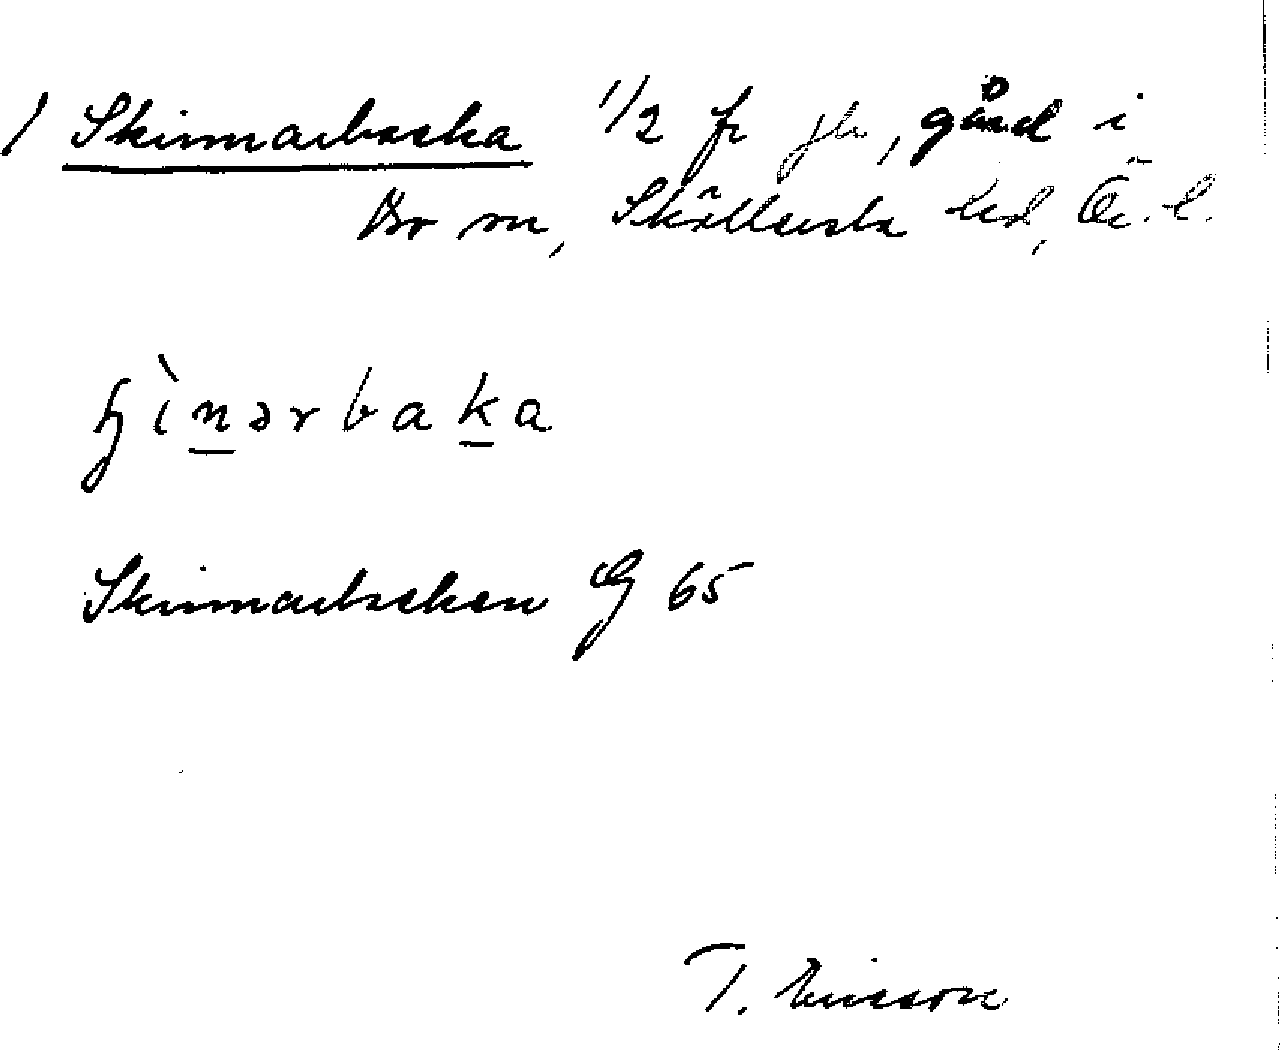 / Skinnarbacka 1/2 fr jb, gård i
Bro sn, Sköllersta hd, Ör. l.
ɧìnərbaka
Skinnarbacken G 65
T. Ericsson